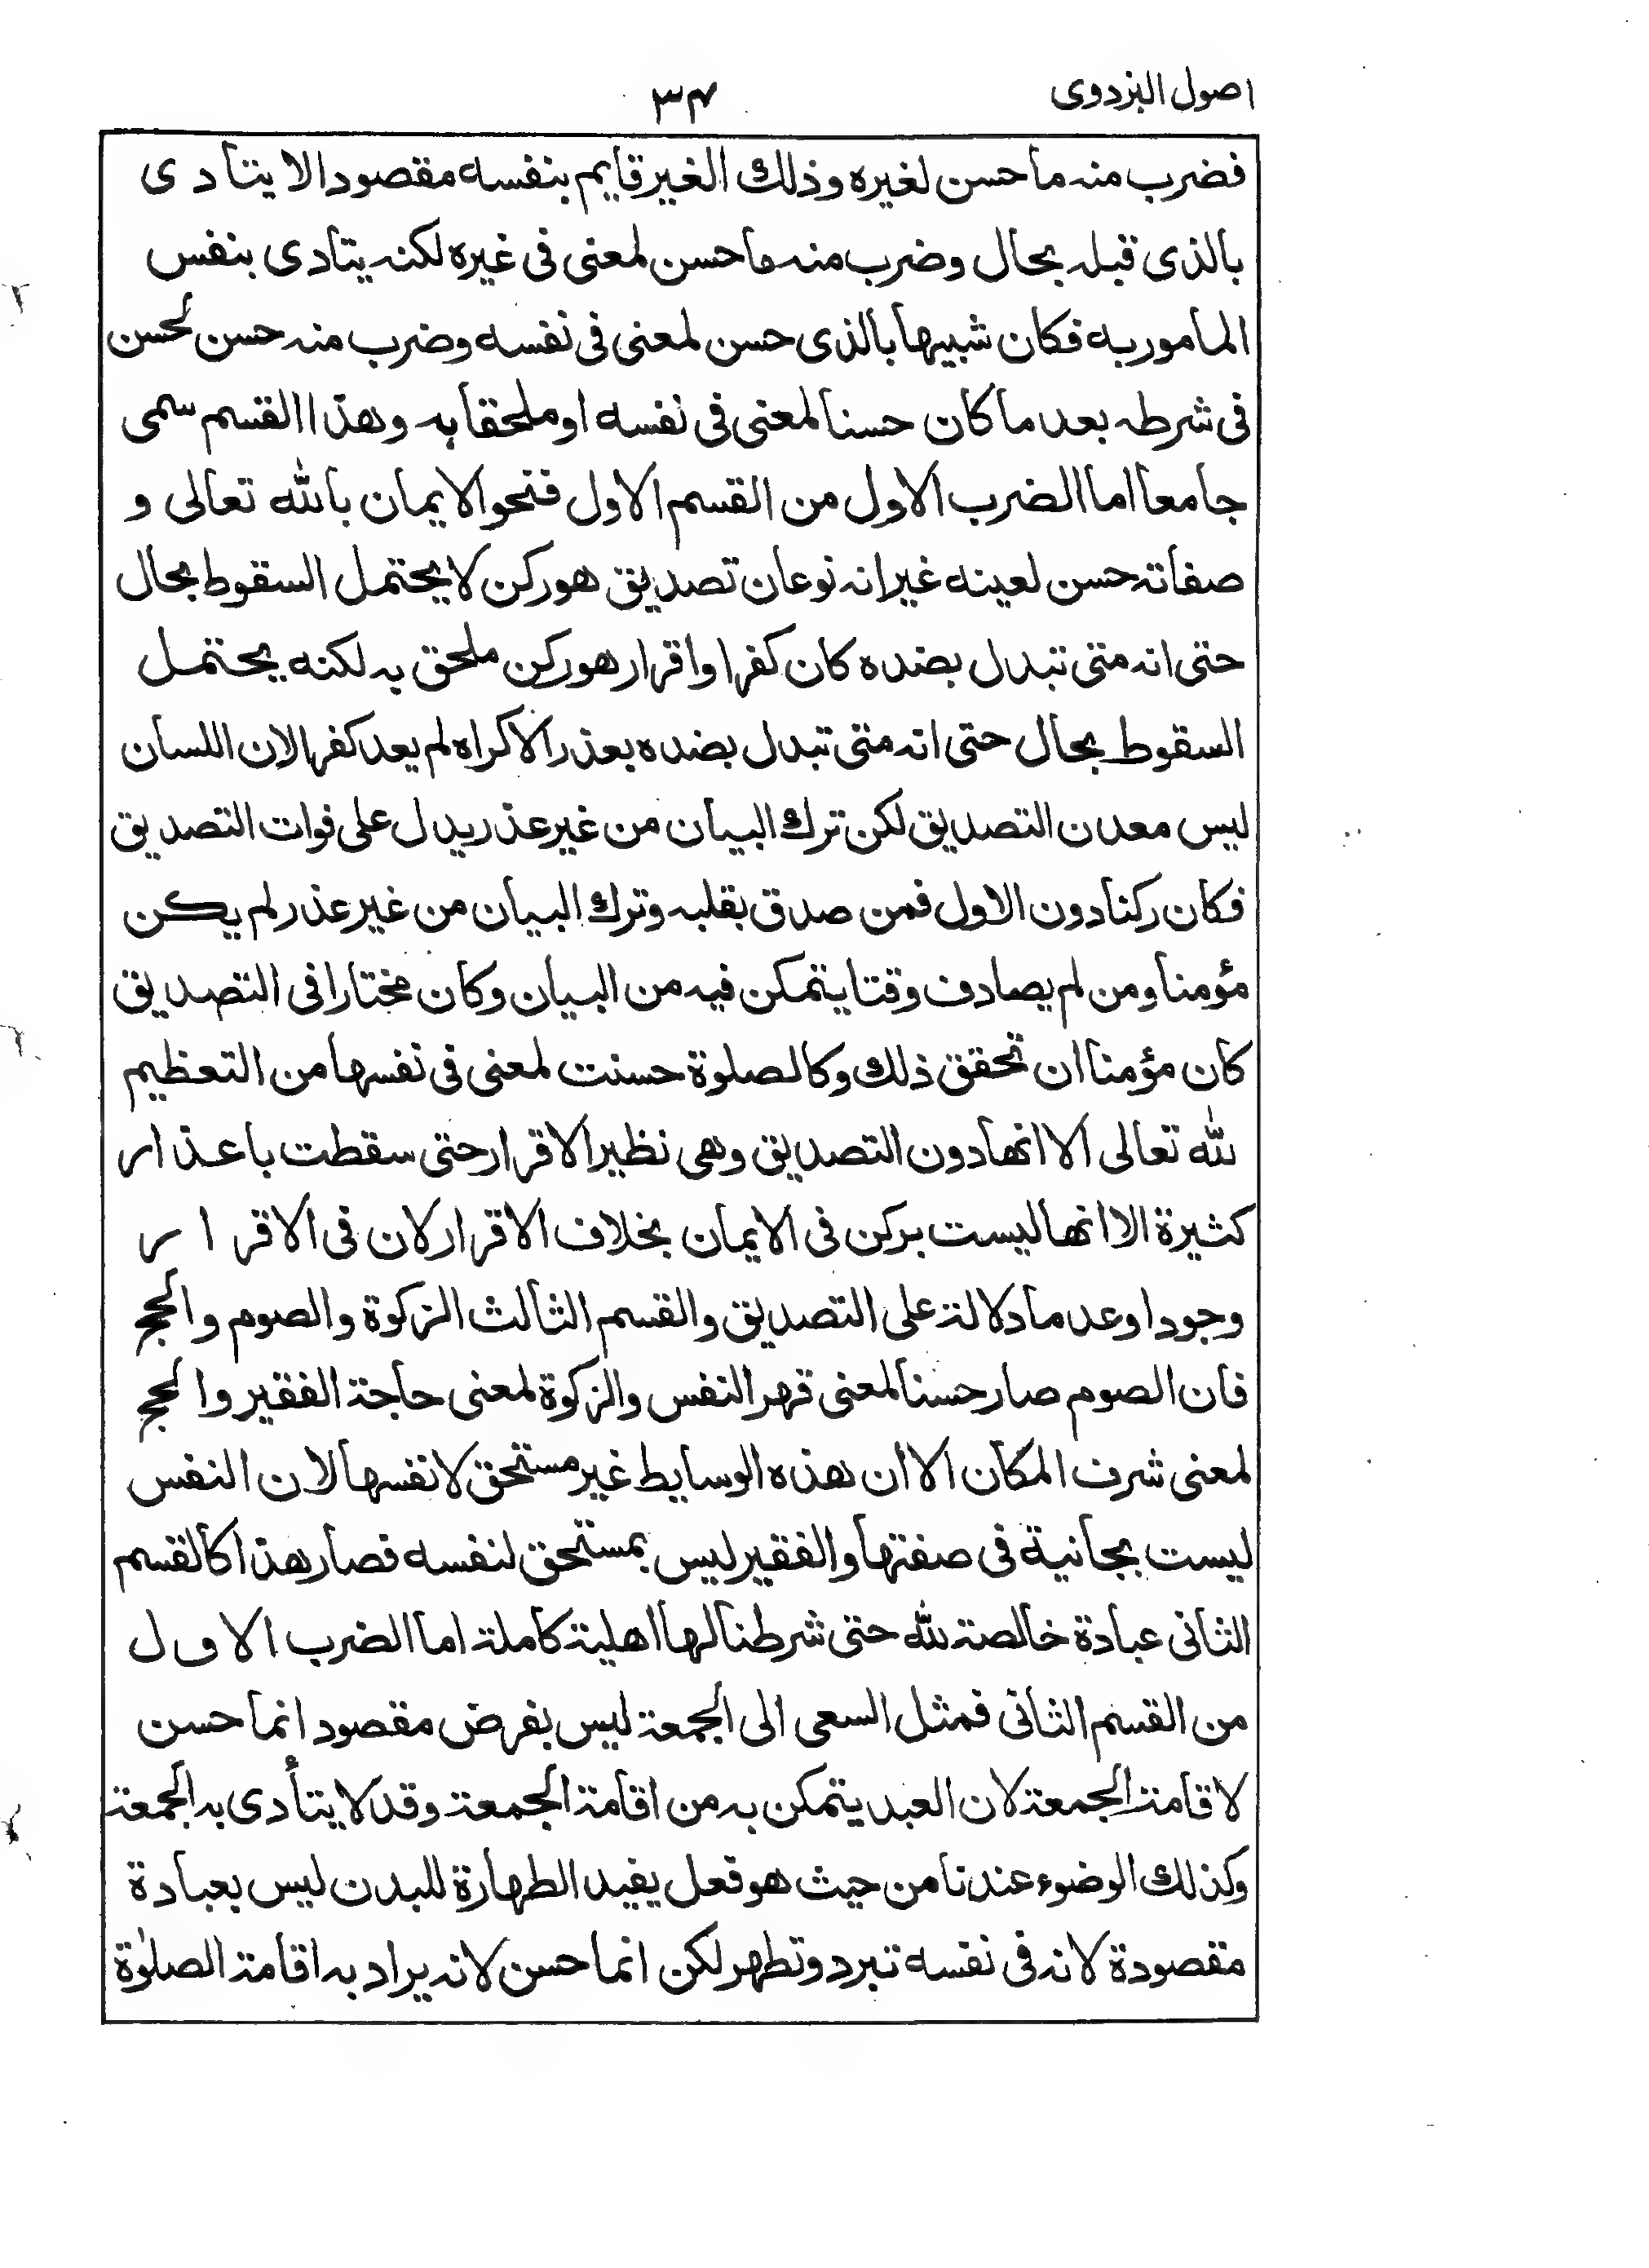 اصول البزدوى
٣٤
فضرب منه ما حسن لغيره وذلك الغير قايم بنفسه مقصودا لا يتأدى
بالذى قبله بحال وضرب منه ما حسن لمعنى فى غيره لكنه يتادى بنفس
المأمور به فكان شبيها بالذى حسن لمعنى فى نفسه وضرب منه حسن لحسن
فى شرطه بعد ما كان حسنا لمعنى فى نفسه او ملحقا به وهذا القسم سمى
جامعا اما الضرب الاول من القسم الاول فنحو الايمان بالله تعالى و
صفاته حسن لعينه غير انه نوعان تصديق هو ركن لا يحتمل السقوط بحال
حتى انه متى تبدل بضده كان كفرا واقرار هو ركن ملحق به لكنه يحتمل
السقوط بحال حتى انه متى تبدل بضده بعذر الاكراه لم يعد كفرا لان اللسان
ليس معدن التصديق لكن ترك البيان من غير عذر يدل على فوات التصديق
فكان ركنا دون الاول فمن صدق بقلبه وترك البيان من غير عذر لم يكن
مؤمنا ومن لم يصادف وقتا يتمكن فيه من البيان وكان مختارا فى التصديق
كان مؤمنا ان تحقق ذلك وكالصلوة حسنت لمعنى فى نفسها من التعظيم
لله تعالى الا انها دون التصديق وهى نظير الاقرار حتى سقطت باعذار
كثيرة الا انها ليست بركن فى الايمان بخلاف الاقرار لان فى الاقرار
وجودا وعدما دلالة على التصديق والقسم الثالث الزكوة والصوم والحج
فان الصوم صار حسنا لمعنى قهر النفس والزكوة لمعنى حاجة الفقير والحج
لمعنى شرف المكان الا أن هذه الوسايط غير مستحق لانفسها لان النفس
ليست بجانية فى صفتها والفقير ليس بمستحق لنفسه فصار هذا كالقسم
الثانى عبادة خالصة لله حتى شرطنا لها اهلية كاملة اما الضرب الاول
من القسم الثانى فمثل السعى الى الجمعة ليس بفرض مقصود انما حسن
لاقامة الجمعة لان العبد يتمكن به من اقامة الجمعة وقد لا يتأدى به الجمعة
وكذلك الوضوء عندنا من حيث هو فعل يفيد الطهارة للبدن ليس بعبادة
مقصودة لانه فى نفسه تبرد وتطهر لكن انما حسن لانه يراد به اقامة الصلوٰة